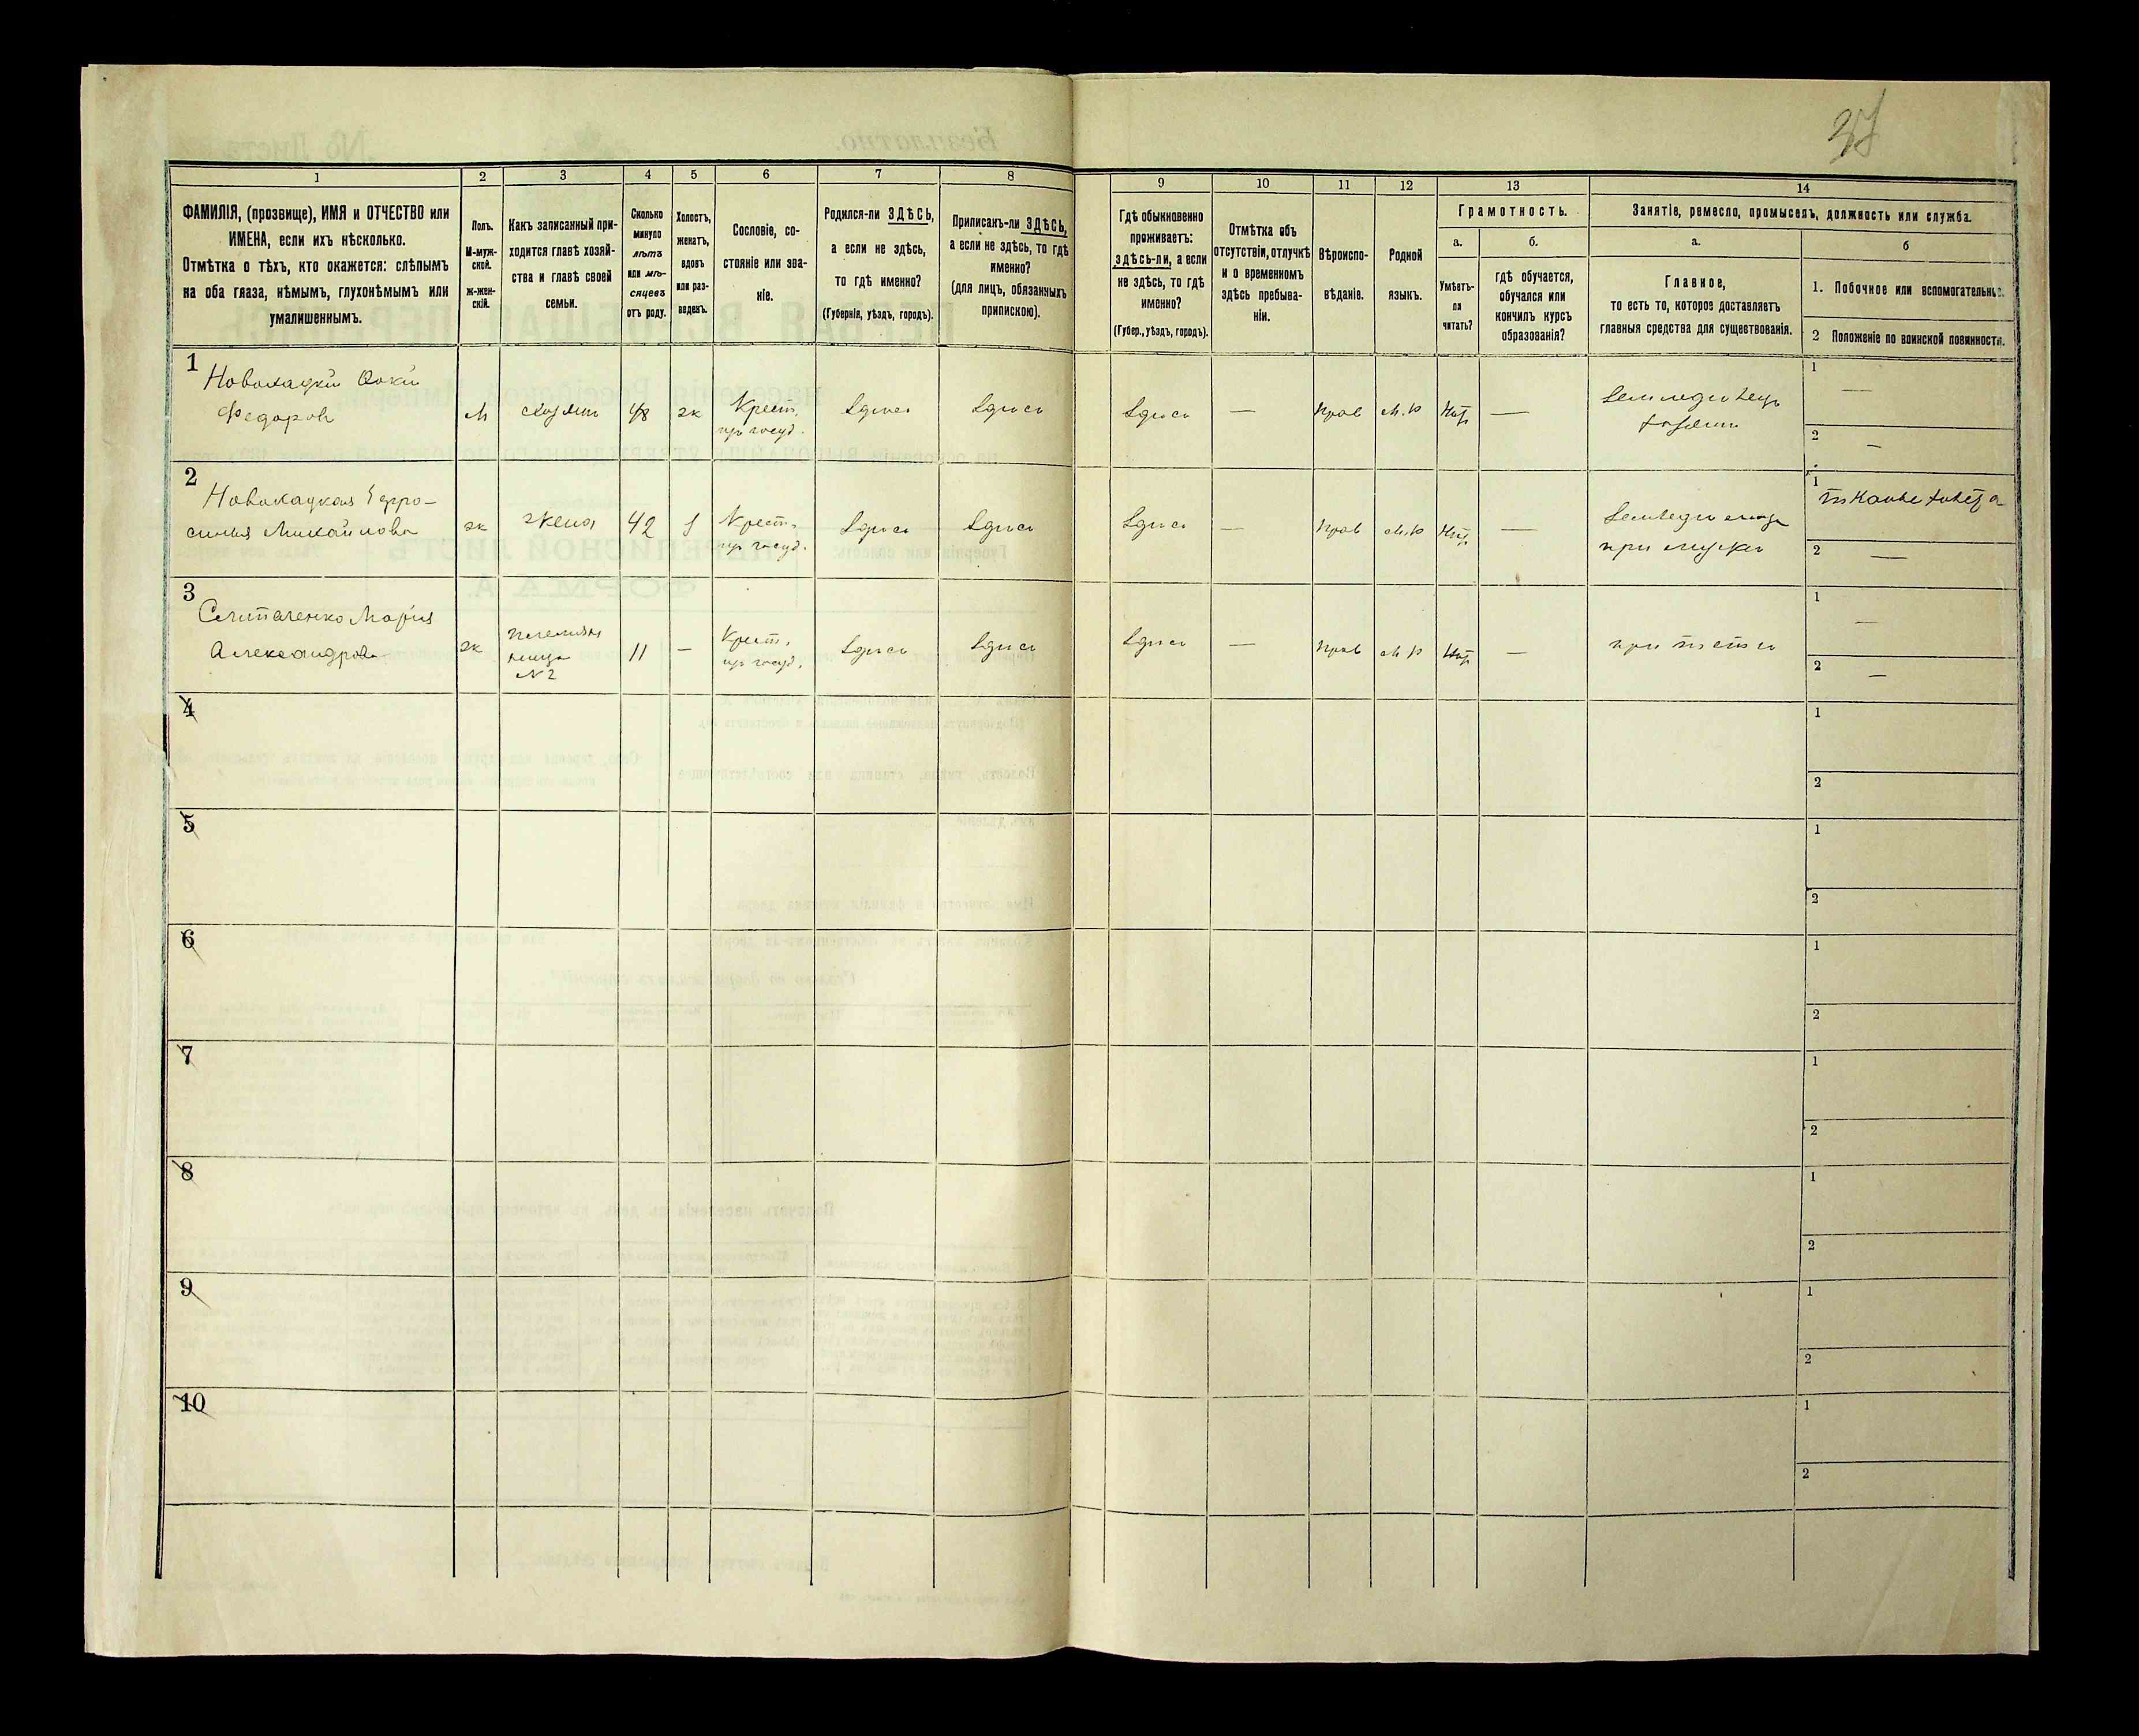 37
1
2
3
4
5
6
7
8
9
10
11
12
13
14
ФАМИЛІЯ, (прозвище), ИМЯ и ОТЧЕСТВО или
ИМЕНА, если ихъ нѣсколько.
Отмѣтка о тѣхъ, кто окажется: слѣпымъ
на оба глаза, нѣмымъ, глухонѣмымъ или
умалишеннымъ.
Полъ.
М-муж-
ской.
ж-жен-
скій.
Какъ записанный при-
ходится главѣ хозяй-
ства и главѣ своей
семьи.
Сколько
минуло
лѣтъ
или мѣ-
сяцевъ
отъ роду.
Холостъ,
женатъ,
вдовъ
или раз-
веденъ.
Сословіе, со-
стояніе или зва-
ніе.
Родился-ли ЗДѢСЬ,
а если не здѣсь,
то гдѣ именно?
(Губернія, уѣздъ, городъ).
Приписанъ-ли ЗДѢСЬ,
а если не здѣсь, то гдѣ
именно?
(для лицъ, обязанныхъ
припискою).
Гдѣ обыкновенно
проживаетъ:
здѣсь-ли, а если
не здѣсь, то гдѣ
именно?
(Губер., уѣздъ, городъ).
Отмѣтка объ
отсутствіи, отлучкѣ
и о временномъ
здѣсь пребыва-
ніи.
Вѣроиспо-
вѣданіе.
Родной
языкъ.
Грамотность.
а.
Умѣетъ-
ли
читать?
б.
гдѣ обучается,
обучался или
кончилъ курсъ
образованія?
Занятіе, ремесло, промыселъ, должность или служба.
а.
Главное,
то есть то, которое доставляетъ
главныя средства для существованія.
б
1. Побочное или вспомогательное.
2 Положеніе по воинской повинности.
1
Федоровъ
М
хозяинъ
48
ж
Крест.
изъ госуд.
Здѣсь
Здѣсь
Здѣсь
—
прав
М.р
Нѣтъ
—
Земледѣлецъ
хозяинъ
1 —
2 —
2
Новохацкая Ефро-
синья Михайлова
ж
жена
42
з
Крест.
изъ госуд.
Здѣсь
Здѣсь
Здѣсь
—
прав
М.р
Нѣтъ
—
при мужѣ
1
2 —
3
Слипаченко Марія
Александрова
ж
племян
ница
№2
11
—
Крест.
изъ госуд.
Здѣсь
Здѣсь
Здѣсь
—
прав
М р
Нѣтъ
—
при теткѣ
1 —
2 —
4
1
2
5
1
2
6
1
2
7
1
2
8
1
2
9
1
2
10
1
2